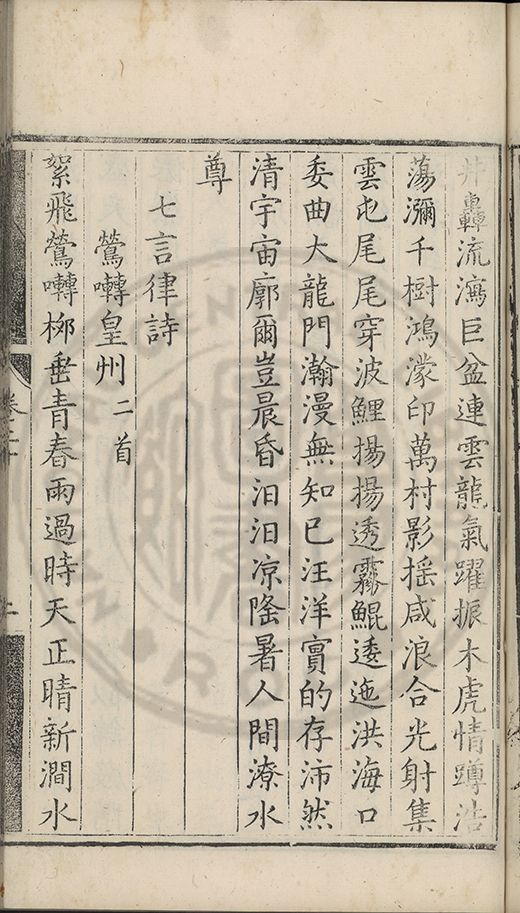 井轟流瀉巨盆連雲龍氣躍振木虎情蹲浩
蕩瀰千樹鴻濛印萬村影摇咸浪合光射集
雲屯尾尾穿波鯉揚揚透霧鯤逶迤洪海口
委曲大龍門瀚漫無知已汪洋實的存沛然
清宇宙廓爾豈晨昏汨汨凉陰暑人間潦水
尊
七言律詩
鶯囀皇州二首
絮飛鶯囀栁垂青春雨過時天正晴新澗水